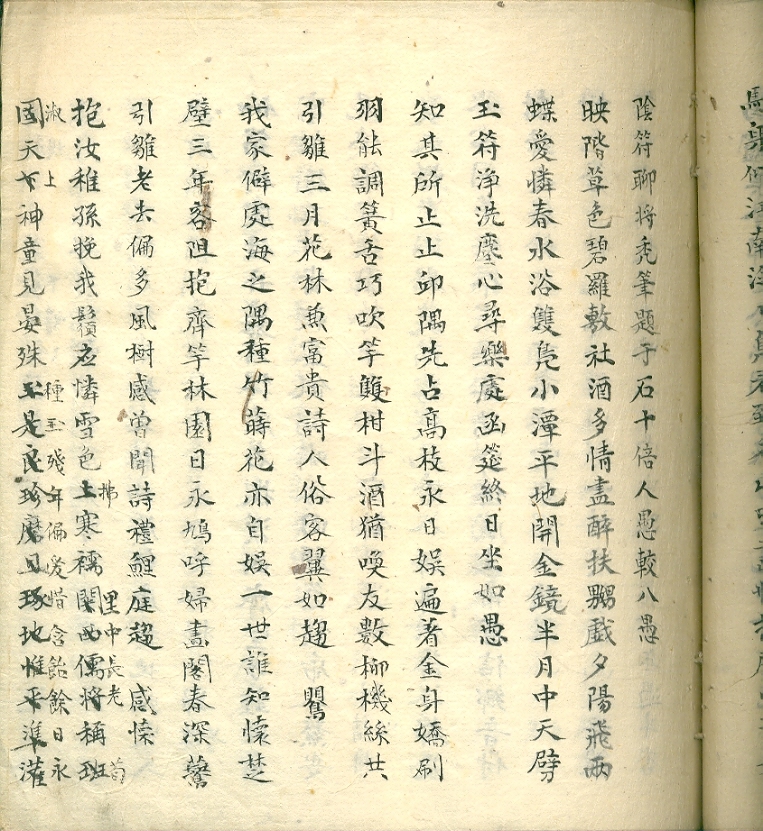 陰符聊將禿筆題于石十倍人愚較八愚
映階草色碧羅敷社酒多情盡醉扶嬲戲夕陽飛兩
蝶愛憐春水浴雙鳧小潭平地開金鏡半月中天劈
玉符淨洗塵心尋樂處函筵終日坐如愚
知其所止止邱隅先占高枝永日娛遍著金身嬌刷
羽能調簧舌巧吹竽雙柑斗酒猶喚友數柳機絲共
引雛三月花林兼富貴詩人俗客翼如趨 鶯
我家僻處海之隅種竹蒔花亦自娛一世誰知懷楚
璧三年客阻抱齊竽林園日永鳩呼婦畫閣春深鶯
引雛老去偏多風樹感曾聞詩禮鯉庭趨 感懷
抱汝稚孫挽我鬚應憐雪色上寒襦關西儒將稱班
淑 上 種玉殘年偏愛惜含飴餘日永
拂 里中長老 荀
國天女神童見晏殊玉是良珍磨且琢地惟平準灌